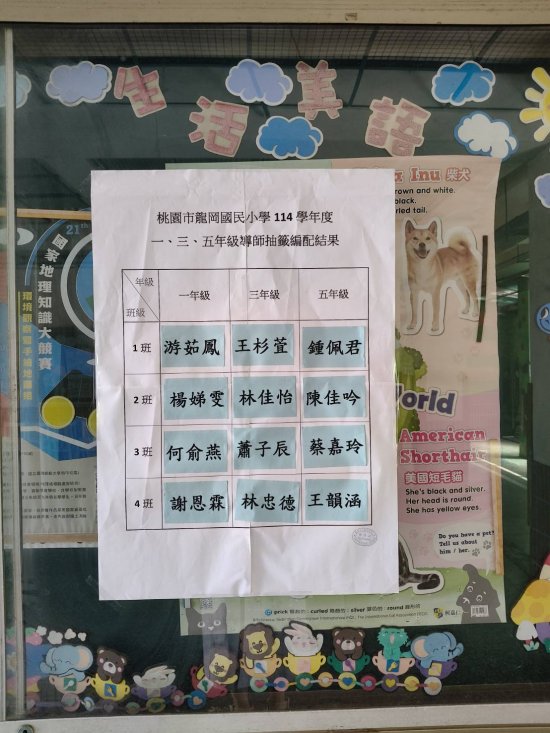 生活美語
桃園市龍岡國民小學 114 學年度
一、三、五年級導師抽籤編配結果
年級
班級
一年級 三年級 五年級
1 班 游茹鳳 王杉萱 鍾佩君
2 班 楊娣雯 林佳怡 陳佳吟
3 班 何俞燕 蕭子辰 蔡嘉玲
4 班 謝恩霖 林忠德 王韻涵
21th
國家地理知識大競賽
Inu 柴犬
rown and white.
black.
rled tail.
World
American
Shorthair
美國短毛貓
She's black and silver.
Her head is round.
She has yellow eyes.
Do you have a pet?
Tell us about
him / her.